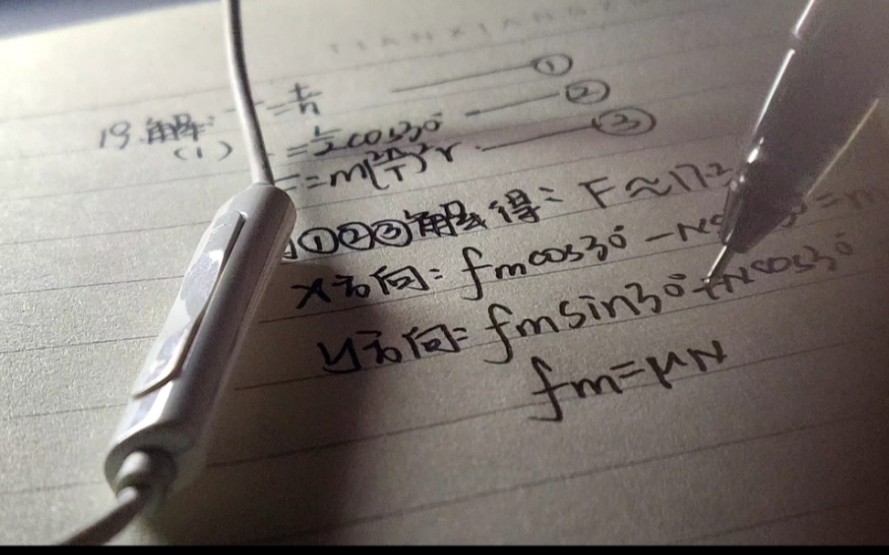 TIANXIANG
19.解: = t/n ①
(1) = L/2 cos30° ②
= m(2π/T)²r ③
①②③解得: F≈17.3
x方向: fmcos30° - N = m
y方向: fmsin30° + Ncos30°
fm=μN